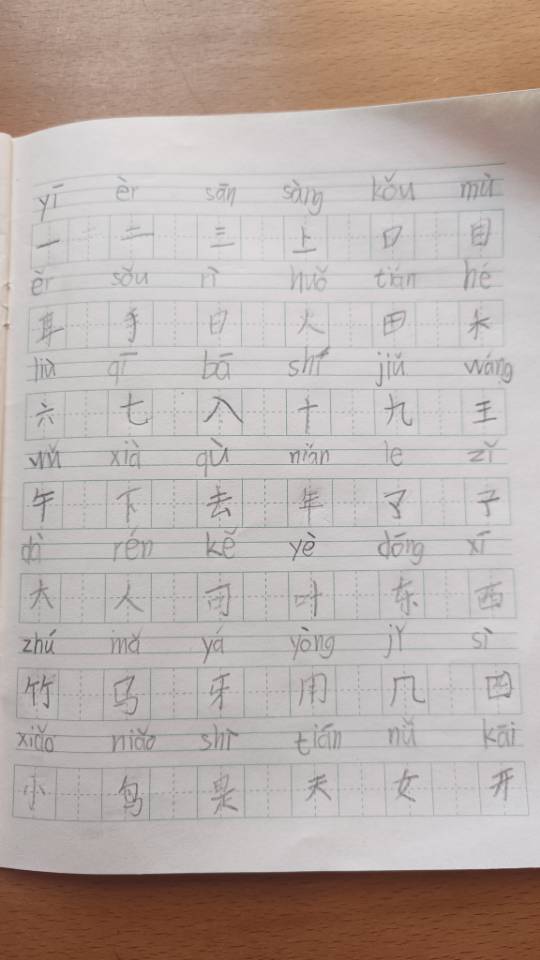 yī èr sān sàng kǒu mù
一 二 三 上 口 目
ěr sǒu rì huǒ tián hé
耳 手 日 火 田 禾
liù qī bā shí jiǔ wáng
六 七 八 十 九 王
wǔ xià qù nián le zǐ
午 下 去 年 了 子
dà rén kě yè dōng xī
大 人 可 叶 东 西
zhú mǎ yá yòng jǐ sì
竹 马 牙 用 几 四
xiǎo niǎo shì tiān nǚ kāi
小 鸟 是 天 女 开